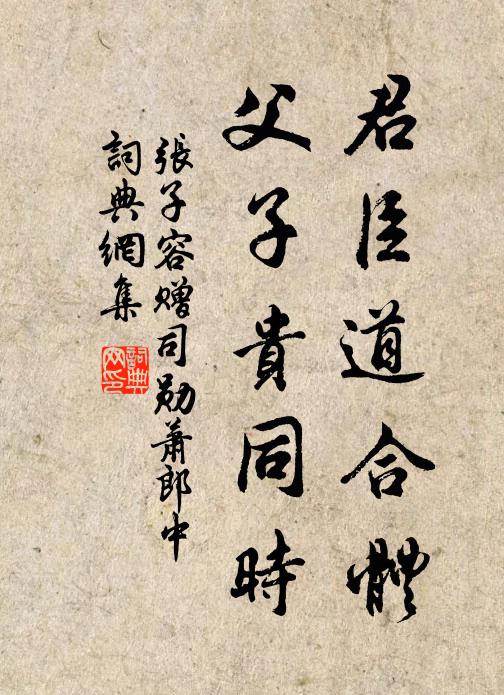 君臣道合體
父子貴同時
張子容贈司勛蕭郎中
詞典網集
詞典网印